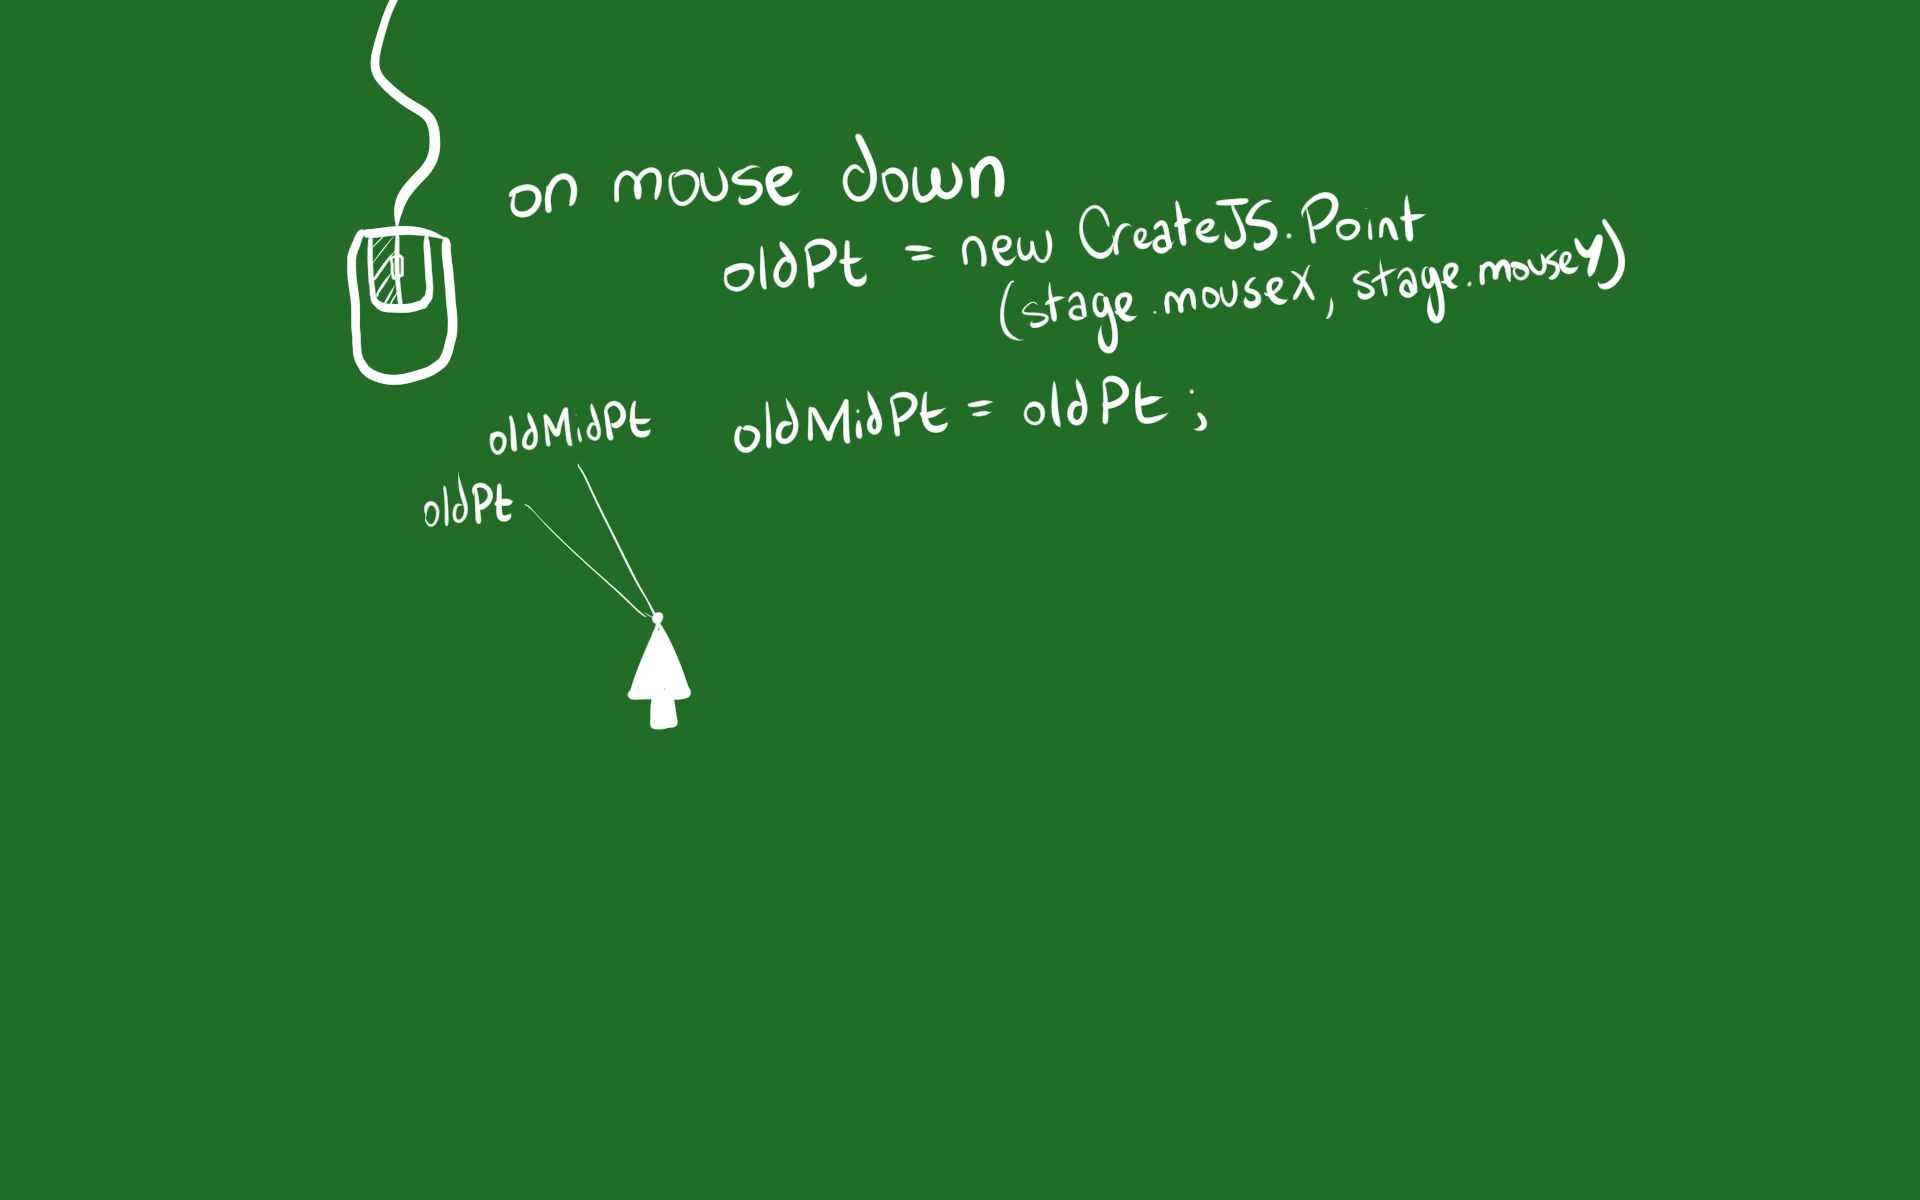 on mouse down
oldPt = new CreateJS.Point
(stage.mouseX, stage.mouseY)
oldMidPt = oldPt ;
oldMidPt
oldPt